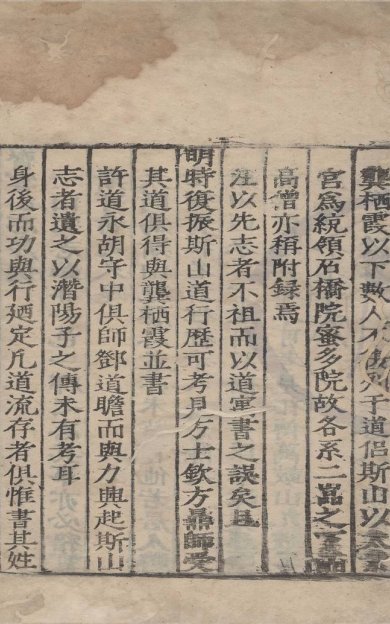 龔栖霞以下數人不後於于道侶斯山以太素
宮爲統領石橋院蜜多院故各系二嵓之宮
高僧亦稱附録焉
注以先志者不祖而以道軍書之誤矣且
明時復振斯山道行歷可考見方士欽方鼎師受
其道俱得與龔栖霞並書
許道永胡守中俱師鄧道瞻而與力興起斯山
志者遺之以潛陽子之傳未有考耳
身後而功與行廼定凡道流存者俱惟書其姓